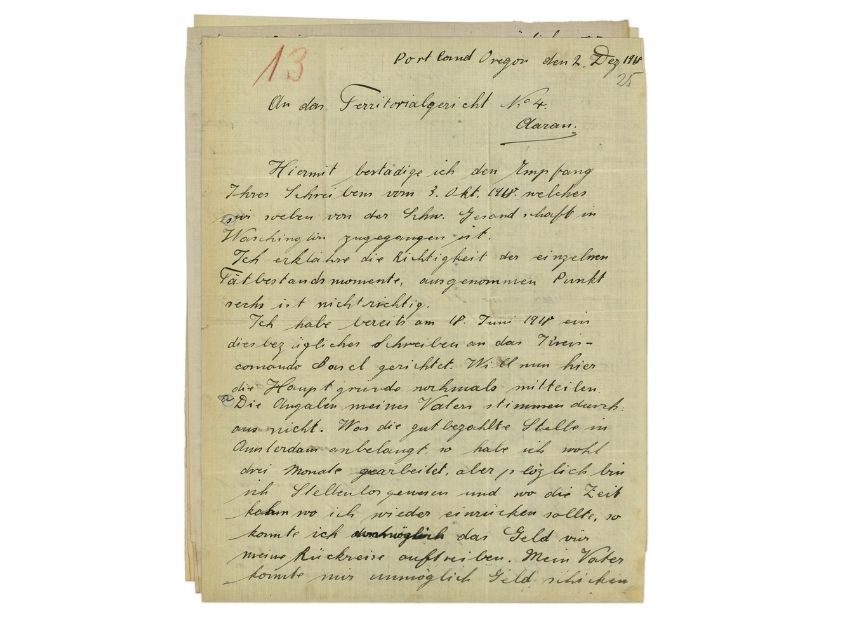 13
Portland Oregon den 2. Dez 1918
25
An das Territorialgericht No 4.
Aarau.
Hiermit bestädige ich den Empfang
Ihres Schreibens vom 3. Okt. 1918. welches
soeben von der Schw. Gesandschaft in
Waschington zugegangen ist.
Ich erklähre die Richtigkeit der einzelnen
Tatbestandsmomente, ausgenommen Punkt
sechs ist nicht richtig.
Ich habe bereits am 18. Juni 1918 ein
diesbezügliches Schreiben an das Kreis-
comando Basel gerichtet. Will nun hier
die Hauptgründe nochmals mitteilen
Die Angaben meines Vaters stimmen durch-
aus nicht. Was die gutbezahlte Stelle in
Amsterdam anbelangt so habe ich wohl
drei Monate gearbeitet, aber plözlich bin
ich Stellenlos gewesen und wo die Zeit
kahm wo ich wieder einrücken sollte, so
konnte ich das Geld für
meine Rückreise auftreiben. Mein Vater
konnte mir unmöglich Geld schicken